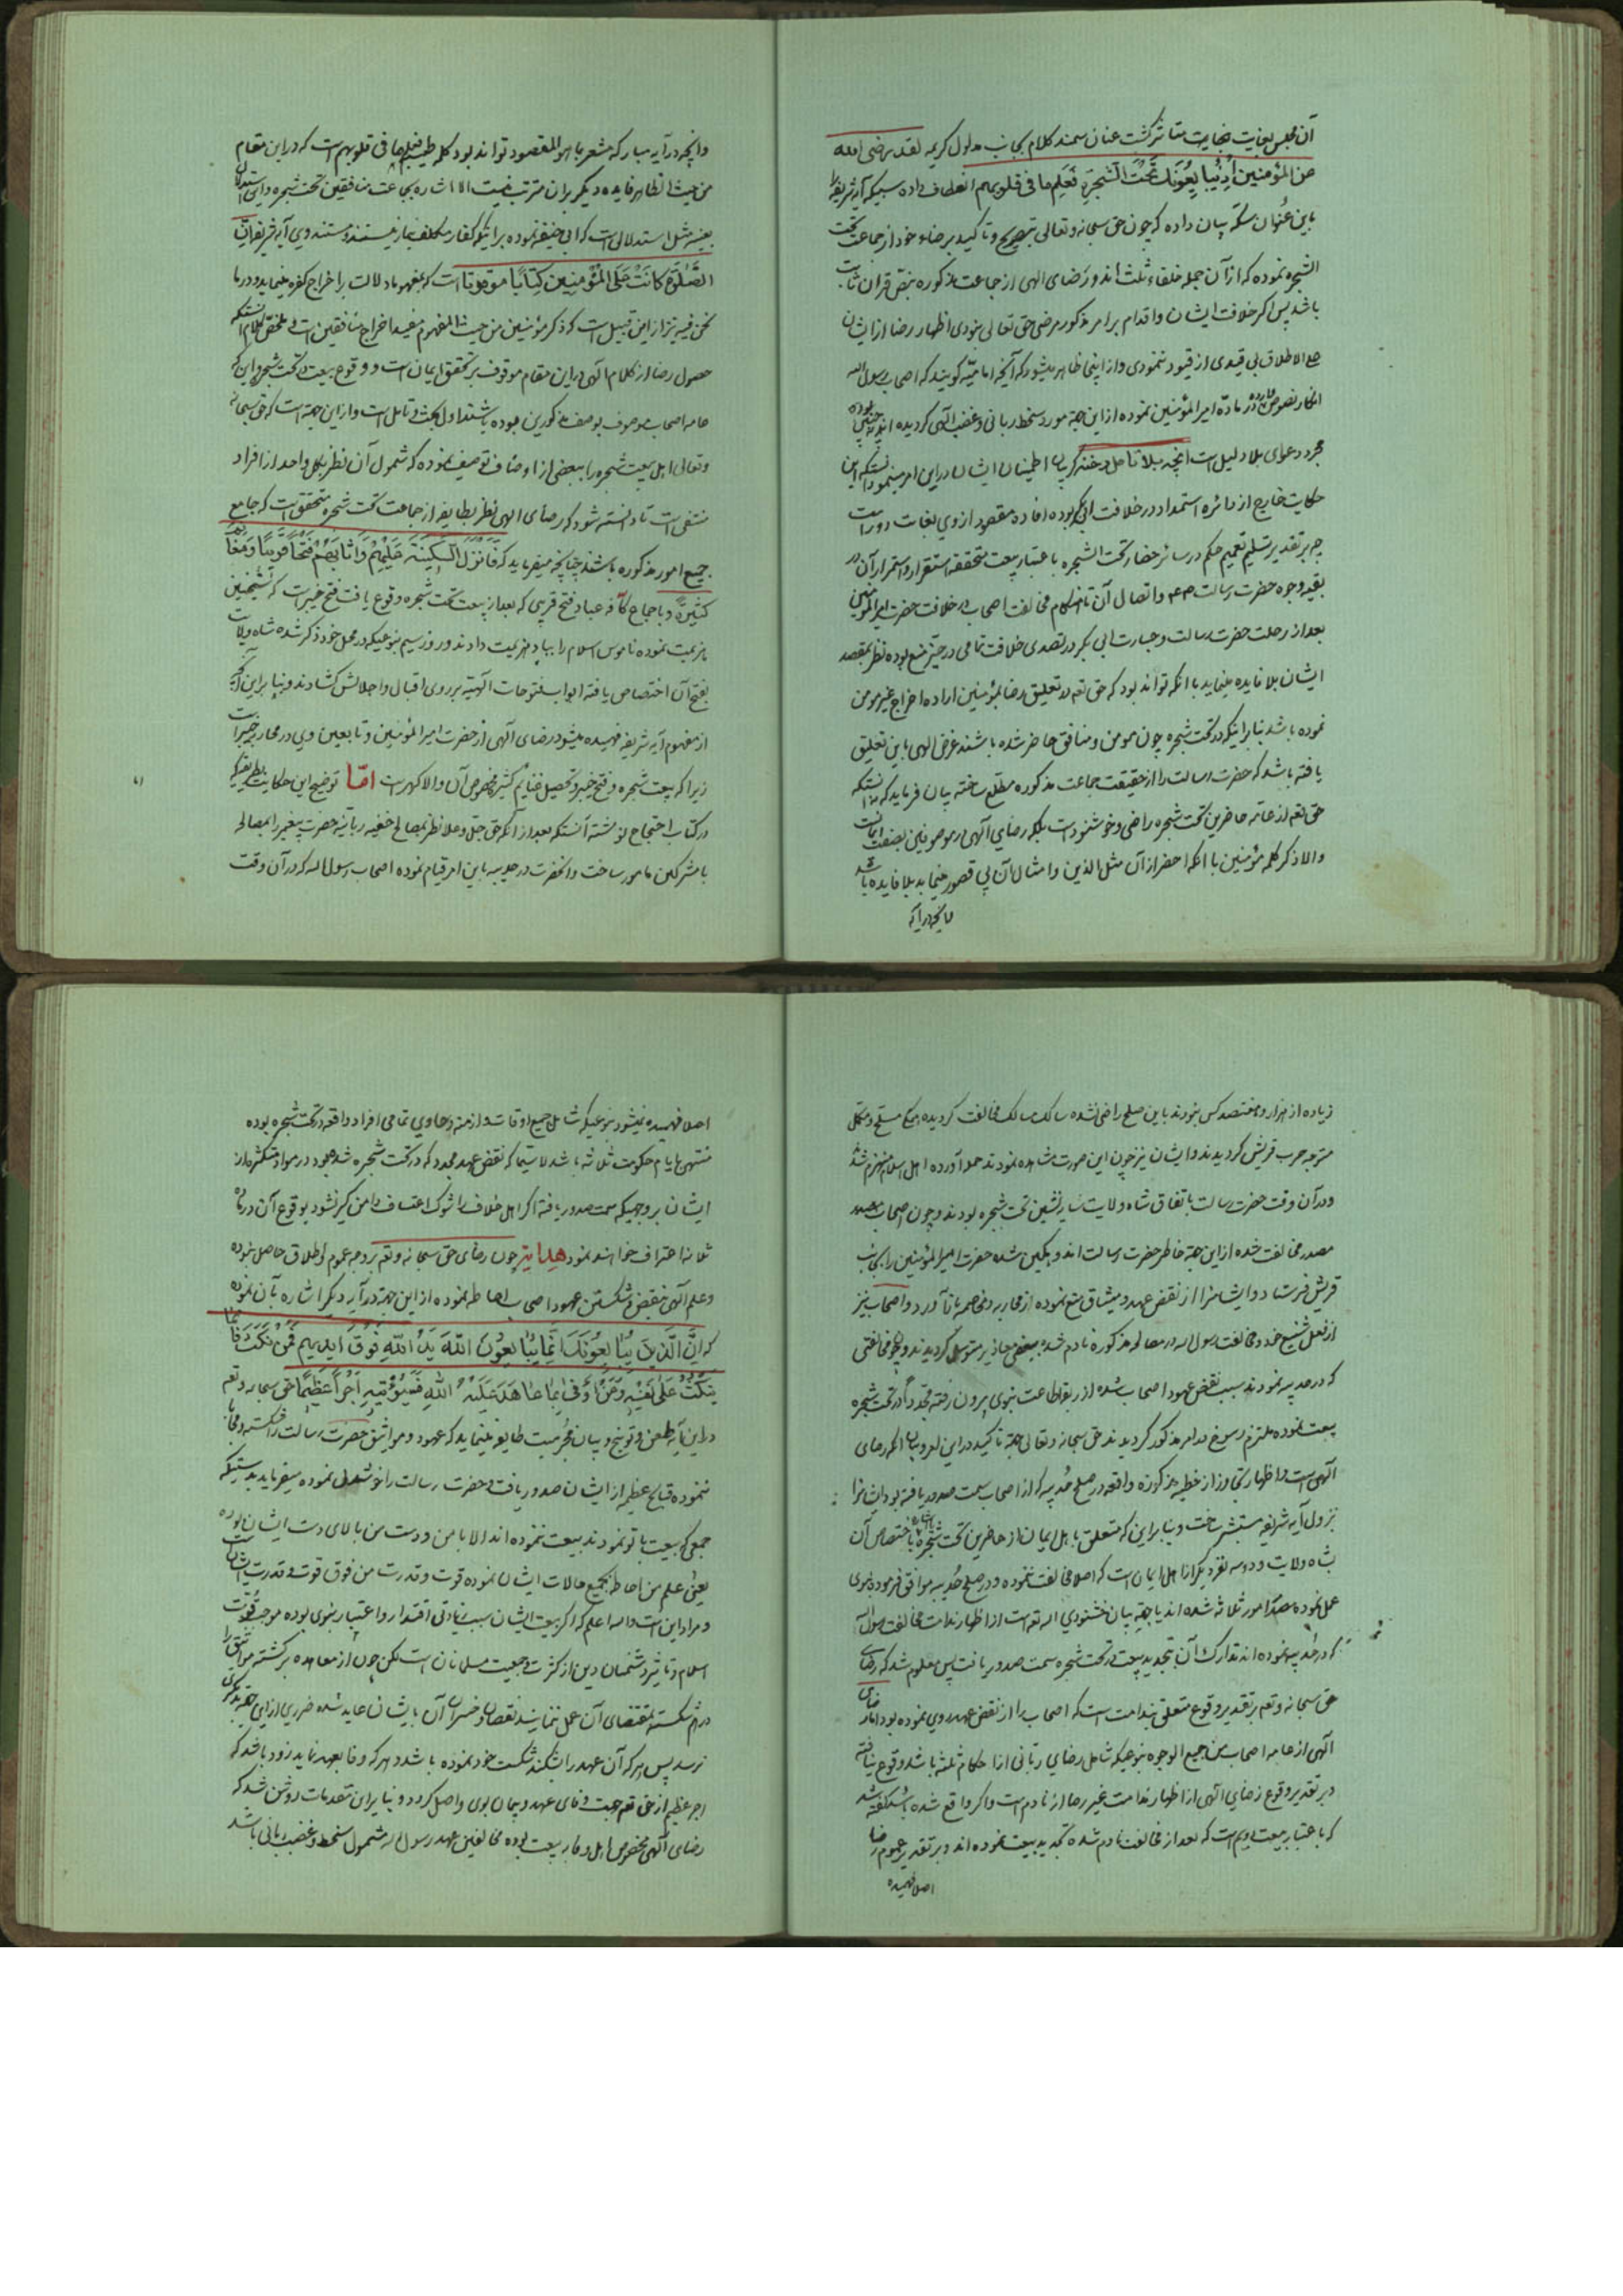 آن مجلس بغایت نهایت متأثر گشت عنان سمند کلام بجانب مدلول کریمه لقد رضی الله
عن المؤمنین اذ یبایعونک تحت الشجرة فعلم ما فی قلوبهم انعطاف داده سبیکه آیه شریفه را
باین عنوان سکه بیان داده که چون حق سبحانه و تعالی بتصریح و تاکید برضاء خود از جماعت تحت
الشجره نموده که از آن جمله خلفاء ثلث اند و رضای الهی از جماعت مذکوره بنص قران ثابت
باشد پس اگر خلافت ایشان و اقدام بر امر مذکور مرضی حق تعالی نبودی اظهار رضا از ایشان
علی الاطلاق بی قیدی از قیود ننمودی و از اینجا ظاهر میشود که آنچه امامیه گویند که اصحاب رسول الله
انکار نصوص وارده در ماده امیر المؤمنین نموده از این جهة مورد سخط ربانی و غضب الهی گردیده اند
مجرد دعوای بلا دلیل است انچه بلا تامل
حکایت خارج از دائره استمداد در خلافت ابی بکر بوده افاده مقصود از وی بغایت دور است
چه بر تقدیر تسلیم تعمیم حکم در سائر حضار تحت الشجره باعتبار بیعت متحققه استقرار و استمرار آن در
بقیه وجود حضرت رسالت و اتصال آن تا هنگام مخالفت اصحاب در خلافت حضرت امیر المؤمنین
بعد از رحلت حضرت رسالت و جسارت ابی بکر در تصدی خلافت تمامی در حیز منع بوده نظر بمقصد
ایشان بلا فایده مینماید با انکه تواند بود که حق تعم در تعلیق رضا بمؤمنین اراده اخراج غیر مومن
نموده باشد بنابر اینکه در تحت شجره چون مومن و منافق حاضر شده باشند غرض الهی باین تعلیق
یافته باشد که حضرت رسالت را از حقیقت جماعت مذکوره مطلع ساخته بیان فرماید که
حق تعم از عامه حاضرین تحت شجره راضی و خوشنود است بلکه رضای الهی در موصوفین بصفت ایمانست
والا ذکر کلمه مؤمنین با انکه احضر از آن مثل الذین و امثال آن بی قصور مینماید بلا فایده باشد
و انچه در آیه
و انچه در آیه مبارکه مشعر باهو المقصود تواند بود کلمه طیبه فعلم ما فی قلوبهم است که در این مقام
من حیث الظاهر فایده دیگر بران مترتب نیست الا اشاره بجماعت منافقین تحت شجره و این استدلال
بعینه مثل استدلالی است که ابی حنیفه نموده بر اینکه کفار مکلف بنماز نیستند و مستند وی آیه شریفه ان
الصلوة کانت علی المؤمنین کتابا موقوتا است که بمفهوم دلالت بر اخراج کفره مینماید و در ما
نحن فیه نیز از این قبیل است که ذکر مؤمنین من حیث المفهوم مفید اخراج منافقین است
حصول رضا از کلام الهی در این مقام موقوف بر تحقق ایمان است و وقوع بیعت در تحت شجره و این که
عامه اصحاب موصوف بوصف مذکورین بوده باشند اول بحث و تامل است و از این جهة است که حق سبحانه
و تعالی اهل بیعت شجره را ببعضی از اوصاف توصیف نموده که شمول آن نظر بکل واحد از افراد
منتفی است تا دانسته شود که رضای الهی نظر بطایفه از جماعت تحت شجره متحقق است که جامع
جمیع امور مذکوره باشند چنانچه میفرماید که فانزل السکینة علیهم و اثابهم فتحا قریبا و مغانم
کثیرة و باجماع کافه عباد فتح قریبی که بعد از بیعت تحت شجره وقوع یافت فتح خیبر است که شیخین
هزیمت نموده ناموس اسلام را بباد هزیمت دادند و روز سیم بنوعیکه در محل خود ذکر شده شاه ولایت
بفتح آن اختصاص یافته ابواب فتوحات الهیه بر روی اقبال و اجلالش گشادند و بنابراین آنچه
از مفهوم آیه شریفه فهمیده میشود رضای الهی از حضرت امیر المؤمنین و تابعین وی در محاربه خیبر است
زیرا که بیعت شجره و فتح خیبر و تحصیل غنایم کثیر مخصوص آن والا گهر است اما توضیح این حکایت بطریقیکه
در کتاب احتجاج نوشته آنستکه بعد از آنکه حق جل و علا نظر بمصالح خفیه ربانیه حضرت پیغمبر را بمصالحه
با مشرکین مامور ساخت و انحضرت در حدیبیه باین امر قیام نموده اصحاب رسول الله که در آن وقت
زیاده از هزار و هفتصد کس بودند باین صلح راضی نشده سالک مسالک مخالفت گردیده همگی مسلح و مکمل
متوجه حرب قریش گردیدند و ایشان نیز چون این صورت مشاهده نمودند حمله آورده اهل اسلام منهزم شد
و در آن وقت حضرت رسالت باتفاق شاه ولایت سایه نشین تحت شجره بودند و چون اصحاب
مصدر مخالفت شده از این جهة خاطر حضرت رسالت اندوهگین شده حضرت امیر المؤمنین را بجانب
قریش فرستاد و ایشانرا از نقض عهد و میثاق منع نموده از محاربه و مخاصمه باز آورد و اصحاب نیز
از فعل شنیع خود و مخالفت رسول الله در مصالحه مذکوره نادم شده ببعضی معاذیر متوسل گردیدند و بجهة مخالفتی
که در حدیبیه نمودند بسبب نقض عهود اصحاب شده از ربقه اطاعت نبوی بیرون رفته مجددا در تحت شجره
بیعت نموده ملتزم رسوخ در امر مذکور گردیدند حق سبحانه و تعالی جهة تاکید در این امر و بیان انکه رضای
الهی است و اظهار تجاوز از خطیه مذکوره واقعه در صلح حدیبیه که از اصحاب سمت صدور یافته بود ایشانرا
بنزول آیه شریفه مستبشر ساخت و بنابراین که متعلق باهل ایمان از حاضرین تحت شجره باشد اختصاص آن
بشاه ولایت و دو سه نفر دیگر از اهل ایمان است که اصلا مخالفت ننموده و در صلح حدیبیه موافق فرموده نبوی
عمل نموده مصدر امور ثلاثه شده اند یا جهة بیان خشنودی اله تعم است از اظهار ندامت مخالفت رسول الله
که در حدیبیه نموده اند تدارک آن بتجدید بیعت در تحت شجره سمت صدور یافت پس معلوم شد که رضای
حق سبحانه و تعم بر تقدیر وقوع متعلق بندامت است که اصحاب را از نقض عهد روی نموده بود اما رضای
الهی از عامه اصحاب من جمیع الوجوه بنوعیکه شامل رضای ربانی از احکام ثلثه باشد وقوع نیافته
و بر تقدیر وقوع رضای الهی از اظهار ندامت غیر رضا از نادم است و اگر واقع شده باشد
که باعتبار بیعت دویم است که بعد از مخالفت نادم شده تجدید بیعت نموده اند و بر تقدیر عموم رضا
اصلا فهمیده
اصلا فهمیده نمیشود بنوعیکه شامل جمیع اوقات و ازمنه و حاوی تمامی افراد واقعه در تحت شجره بوده
منتهی بایام حکومت ثلاثه باشد لا سیما که نقض عهد مجدد که در تحت شجره شده بود در مواد متکثره از
ایشان بر وجهیکه سمت صدور یافته اگر اهل خلاف را شوک اعتساف دامن گیر نشود بوقوع آن در ماده
ثلاثه اعتراف خواهند نمود هدایة چون رضای حق سبحانه و تعم بر وجه عموم و اطلاق حاصل نبوده
و علم الهی بنقض و شکستن عهود اصحاب احاطه نموده از این جهة در آیه دیگر اشاره بآن نموده
که ان الذین یبایعونک انما یبایعون الله ید الله فوق ایدیهم فمن نکث فانما
ینکث علی نفسه و من اوفی بما عاهد علیه الله فسیؤتیه اجرا عظیما حق سبحانه و تعم
در این آیه طعن و توبیخ و بیان مجرمیت طایفه مینماید که عهود و مواثیق حضرت رسالت را شکسته وفا
ننموده قبایح عظیمه از ایشان صدور یافت و حضرت رسالت را خوشدل نموده میفرماید بدرستیکه
جمعی که بیعت با تو نمودند بیعت ننموده اند الا با من و دست من بالای دست ایشان بوده
یعنی علم من احاطه بجمیع حالات ایشان نموده قوت و قدرت من فوق قوت و قدرت ایشانست
و مراد این است والله اعلم که اگر بیعت ایشان سبب زیادتی اقتدار و اعتبار نبوی بوده موجب تقویت
اسلام و تاثر دشمنان دین از کثرت و جمعیت مسلمانان است لکن چون از معاهده برگشته مواثیق را
در هم شکسته بمقتضای آن عمل ننمایند نقصان و خسران آن بایشان عاید شده ضرری از این جهة بدیگری
نرسد پس هر که آن عهد را بشکند شکست خود نموده باشد و هر که وفا بعهد نماید زود باشد که
اجر عظیم از حق تعم جهت وفای عهد و پیمان بوی واصل گردد و بنابراین مقدمات روشن شد که
رضای الهی مخصوص اهل وفاء بیعت بوده مخالفین عهد رسول الله مشمول سخط و غضب ربانی باشد